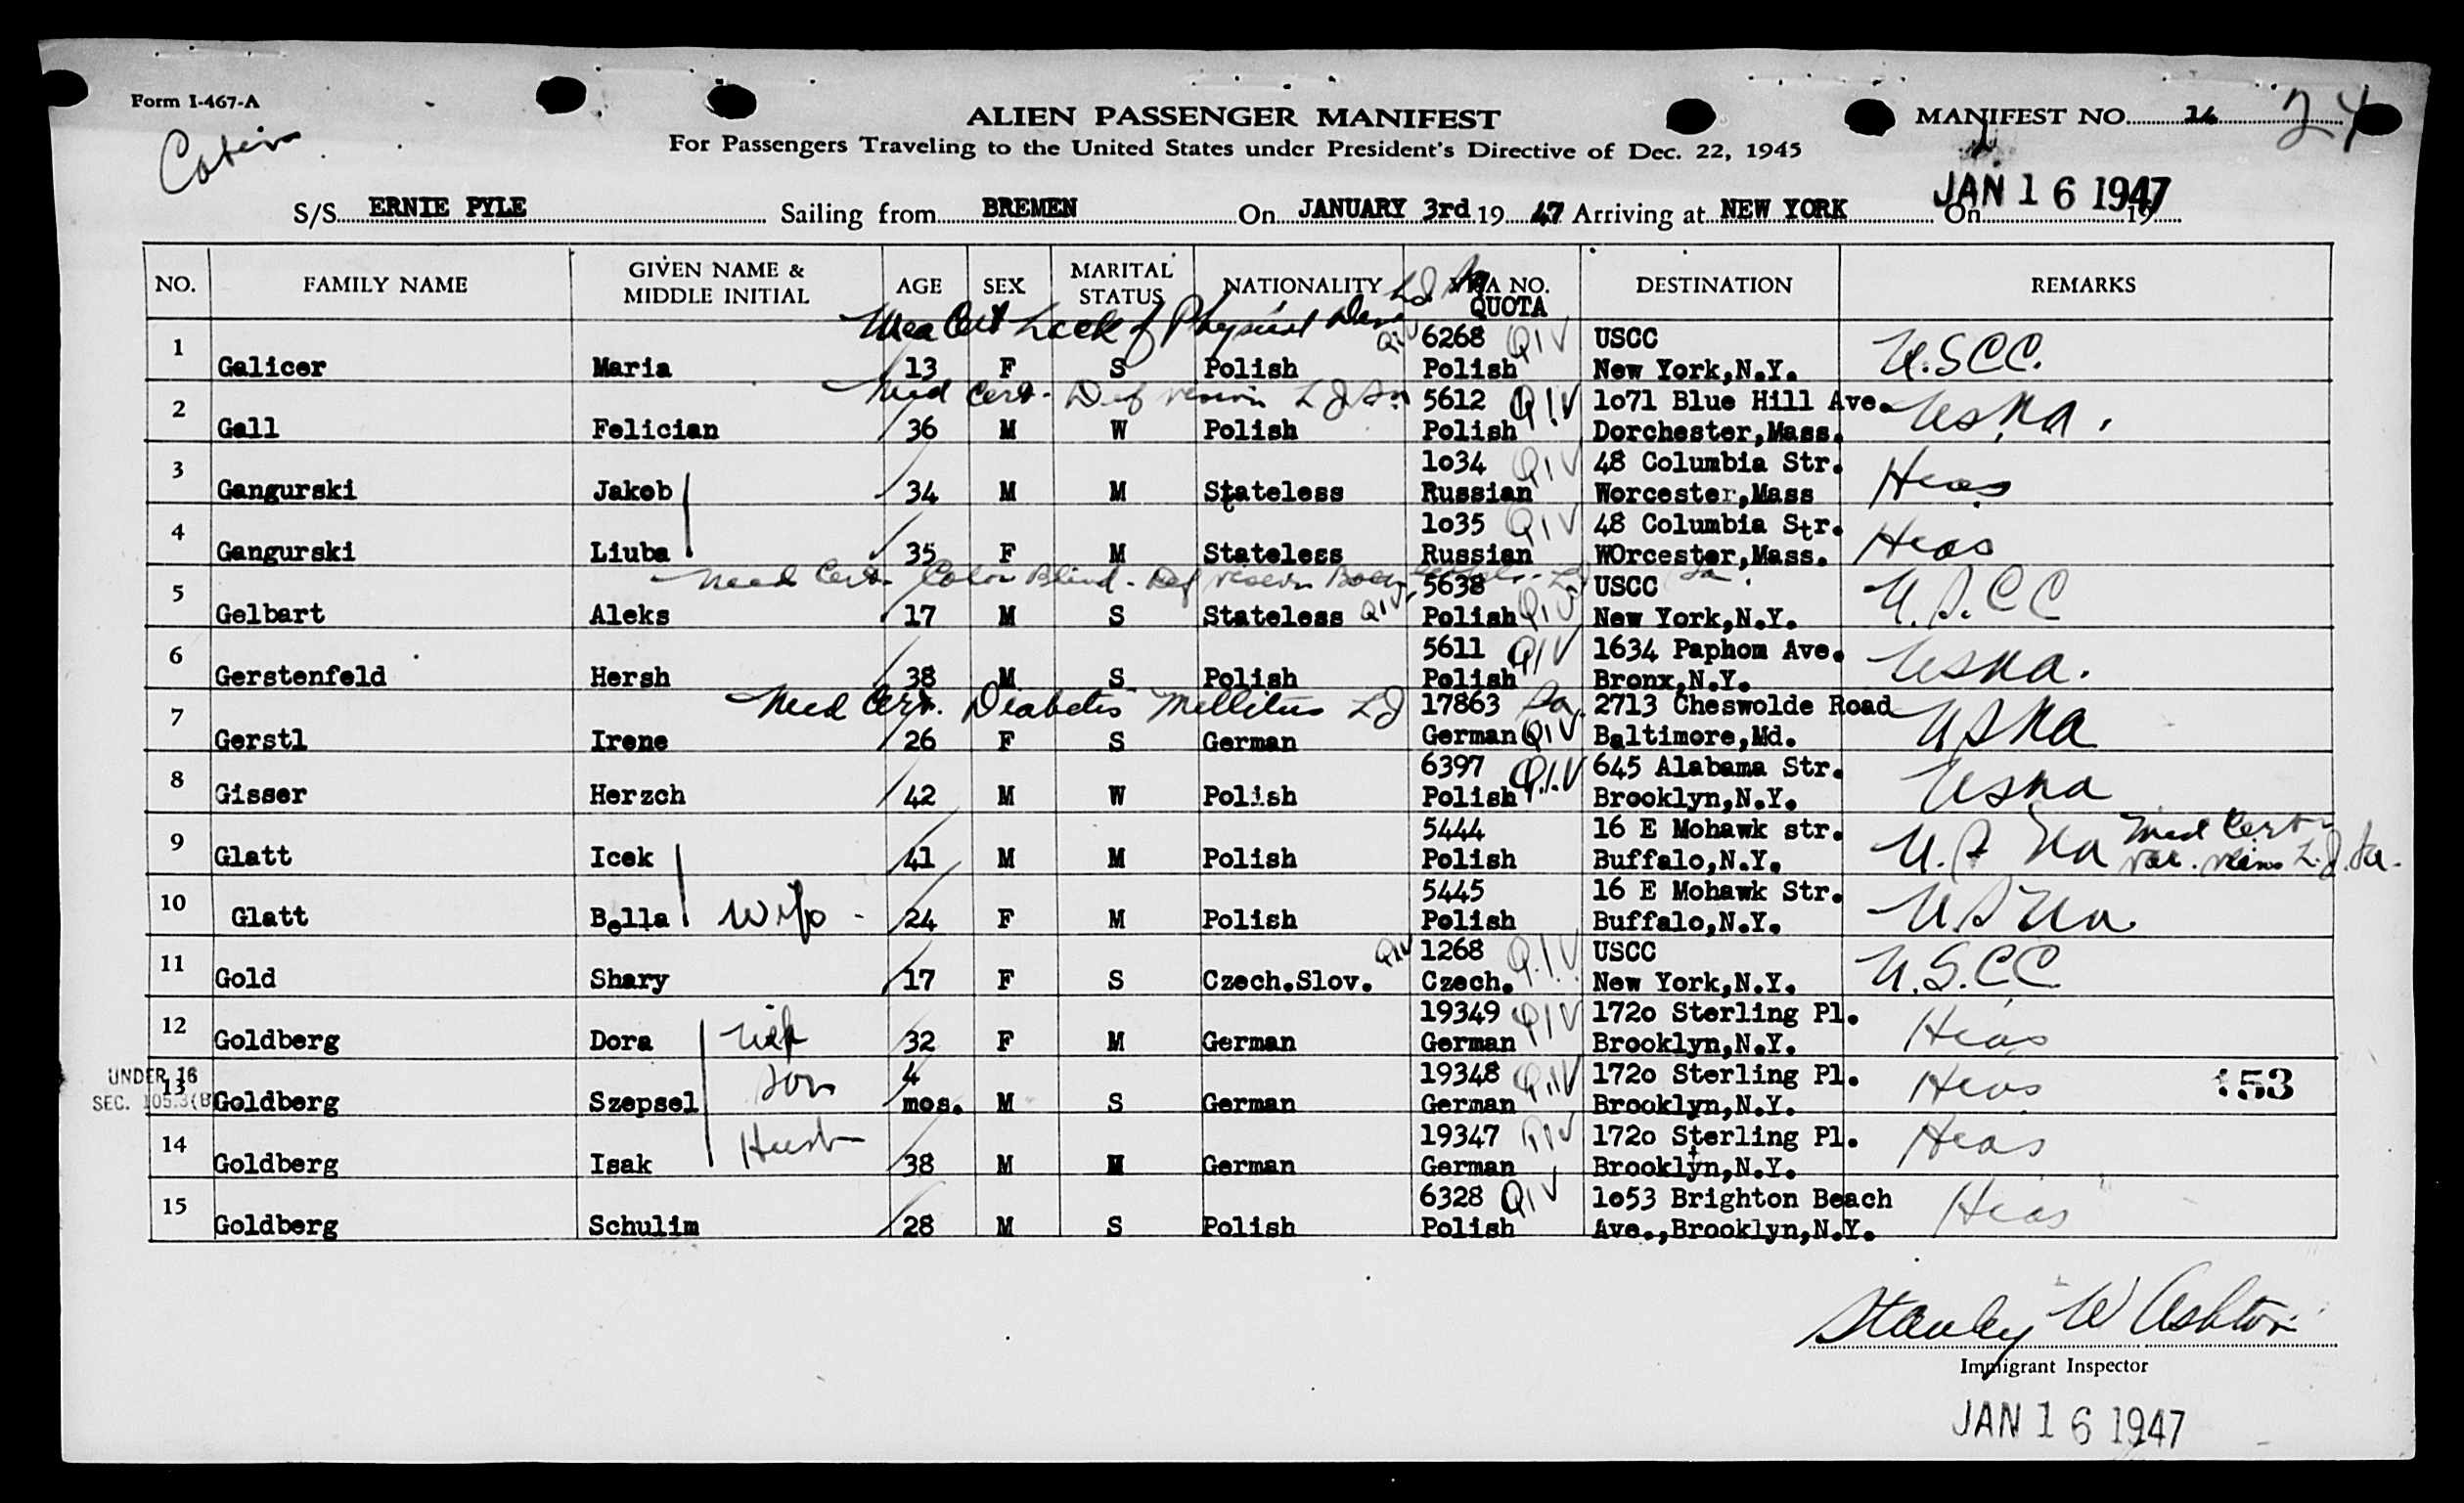 Form I-467-A
ALIEN PASSENGER MANIFEST
MANIFEST NO. 24
For Passengers Traveling to the United States under President's Directive of Dec. 22, 1945
JAN 16 1947
S/S ERNIE PYLE Sailing from BREMEN On JANUARY 3rd 19 47 Arriving at NEW YORK On 19
NO. FAMILY NAME GIVEN NAME & MIDDLE INITIAL AGE SEX MARITAL STATUS NATIONALITY VISA NO. QUOTA DESTINATION REMARKS
Med Cert Lack of Physical
6268 QIV USCC
1 Galicer Maria 13 F S Polish QIV Polish New York,N.Y. U.S.C.C.
Med Cert. Def vision
5612 QIV 1o71 Blue Hill Ave.
2 Gall Felician 36 M W Polish Polish Dorchester,Mass. USNA.
1o34 QIV 48 Columbia Str.
3 Gangurski Jakob 34 M M Stateless Russian Worcester,Mass Hias
1o35 QIV 48 Columbia Str.
4 Gangurski Liuba 35 F M Stateless Russian WOrcester,Mass. Hias
Med Cert. Color Blind - Def vision
5638 USCC
5 Gelbart Aleks 17 M S Stateless QIV Polish QIV New York,N.Y. U.S.CC
5611 QIV 1634 Paphom Ave.
6 Gerstenfeld Hersh 38 M S Polish Polish Bronx,N.Y. USNA.
Med Cert. Diabetis Mellitus
17863 2713 Cheswolde Road
7 Gerstl Irene 26 F S German German QIV Baltimore,Md. USNA
6397 Q.I.V 645 Alabama Str.
8 Gisser Herzch 42 M W Polish Polish Brooklyn,N.Y. USNA
5444 16 E Mohawk str.
9 Glatt Icek 41 M M Polish Polish Buffalo,N.Y. U.S Na Med Cert var. veins
5445 16 E Mohawk Str.
10 Glatt Bella Wife 24 F M Polish Polish Buffalo,N.Y. USNa
QIV 1268 Q.I.V USCC
11 Gold Shary 17 F S Czech.Slov. Czech. New York,N.Y. U.S.C.C
19349 QIV 172o Sterling Pl.
12 Goldberg Dora Wife 32 F M German German Brooklyn,N.Y. Hias
UNDER 16
SEC. 105.3(B
19348 QIV 172o Sterling Pl.
13 Goldberg Szepsel son 4 mos. M S German German Brooklyn,N.Y. Hias 153
19347 QIV 172o Sterling Pl.
14 Goldberg Isak Husb 38 M M German German Brooklyn,N.Y. Hias
6328 QIV 1o53 Brighton Beach
15 Goldberg Schulim 28 M S Polish Polish Ave.,Brooklyn,N.Y. Hias
Stanley W Ashton
Immigrant Inspector
JAN 16 1947